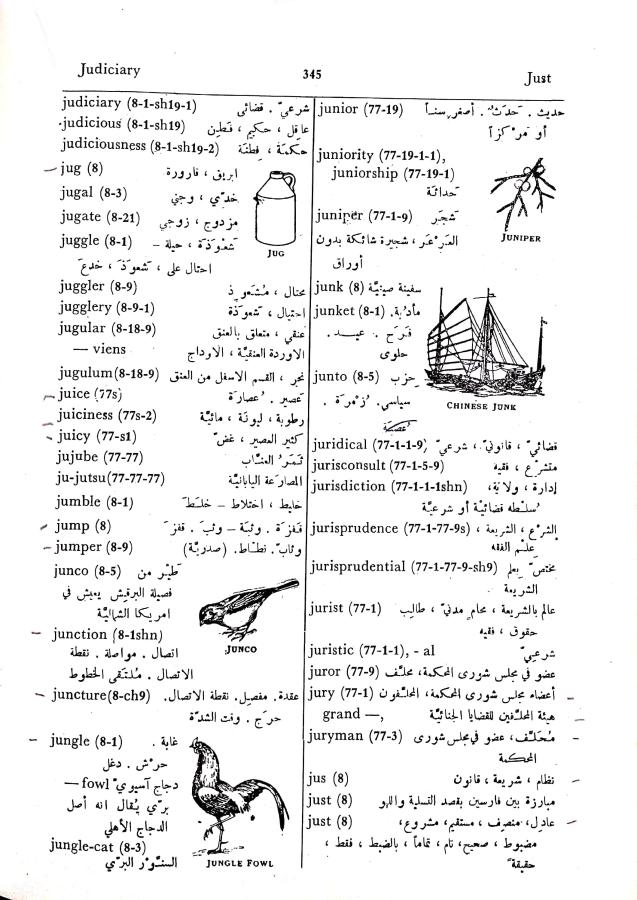 Judiciary 345 Just
judiciary (8-1-sh19-1) شرعيّ . قضائي
judicious (8-1-sh19) عاقل ، حكيم ، فَطِن
judiciousness (8-1-sh19-2) حكمَة ، فِطنَة
jug (8) ابريق ، قارورة
jugal (8-3) خدّي ، وجني
jugate (8-21) مزدوج ، زوجي
juggle (8-1) شَعْوَذَة ، حيلة –
احتال على ، شَعوَذَ ، خدعَ
JUG
juggler (8-9) محتال ، مُشَعوِذ
jugglery (8-9-1) احتيال ، شَعوَذَة
jugular (8-18-9) عنقي ، متعلق بالعنق
— viens الاوردة العنقيّة ، الاوداج
jugulum(8-18-9) نحر ، القسم الاسفل من العنق
juice (77s) عَصير . عُصارَة
juiciness (77s-2) رطوبة ، ليونَة ، مائيّة
juicy (77-s1) كثير العصير ، غضّ
jujube (77-77) ثَمَرُ العنّاب
ju-jutsu(77-77-77) المصارعَة اليابانيّة
jumble (8-1) خليط ، اختلاط – خلَطَ
jump (8) قَفزَة . وثبَة – وثبَ . قفزَ
jumper (8-9) وثّاب . نطّاط . (صدريّة)
junco (8-5) طيْر من
فصيلة البرقيش يعيش في
امريكا الشماليّة
JUNCO
junction (8-1shn)
اتصال . مواصلة . نقطة
الاتصال . مُلتقى الخطوط
juncture(8-ch9) عقدة . مفصِل . نقطة الاتصال .
حرَج . وقت الشدّة
jungle (8-1) غابة .
حرْش . دغل
— fowl دجاج آسيويّ
برّي يُقال انه أصل
الدجاج الأهلي
jungle-cat (8-3)
السنَّوْر البرّي
JUNGLE FOWL
junior (77-19) حديث . حَدَثٌ . أصغر سنّاً
أو مَركزاً
juniority (77-19-1-1),
juniorship (77-19-1)
حَداثة
juniper (77-1-9) شَجَر
العَرْعَر ، شجيرة شائكة بدون
أوراق
JUNIPER
junk (8) سفينة صينيّة
junket (8-1) مأدُبة .
فَرَح . عيد .
حلوى
junto (8-5) حزب
سياسي . زُمرَة .
عُصبَة
CHINESE JUNK
juridical (77-1-1-9) قضائيّ ، قانونيّ ، شرعيّ
jurisconsult (77-1-5-9) متشرّع ، فقيه
jurisdiction (77-1-1-1shn) إدارة ، ولايَة ،
سُلطَه قضائيّة أو شرعيّة
jurisprudence (77-1-77-9s) الشرْع ، الشريعة ،
علْم الفقه
jurisprudential (77-1-77-9-sh9) مختصّ بعلم
الشريعة
jurist (77-1) عالم بالشريعة ، محامٍ مدنيّ ، طالب
حقوق ، فقيه
juristic (77-1-1), - al شرعيّ
juror (77-9) عضو في مجلس شورى المحكمة ، محلَّف
jury (77-1) أعضاء مجلس شورى المحكمة ، المحلّفون
grand —, هيئة المحلّفين للقضايا الجنائيّة
juryman (77-3) مُحَلَّف ، عضو في مجلس شورى
المحكمة
jus (8) نظام ، شريعة ، قانون
just (8) مبارزة بين فارسين بقصد التسلية واللهو
just (8) عادل ، منصف ، مستقيم ، مشروع ،
مضبوط ، صحيح ، تام ، تماماً ، بالضبط ، فقط ،
حقيقةً